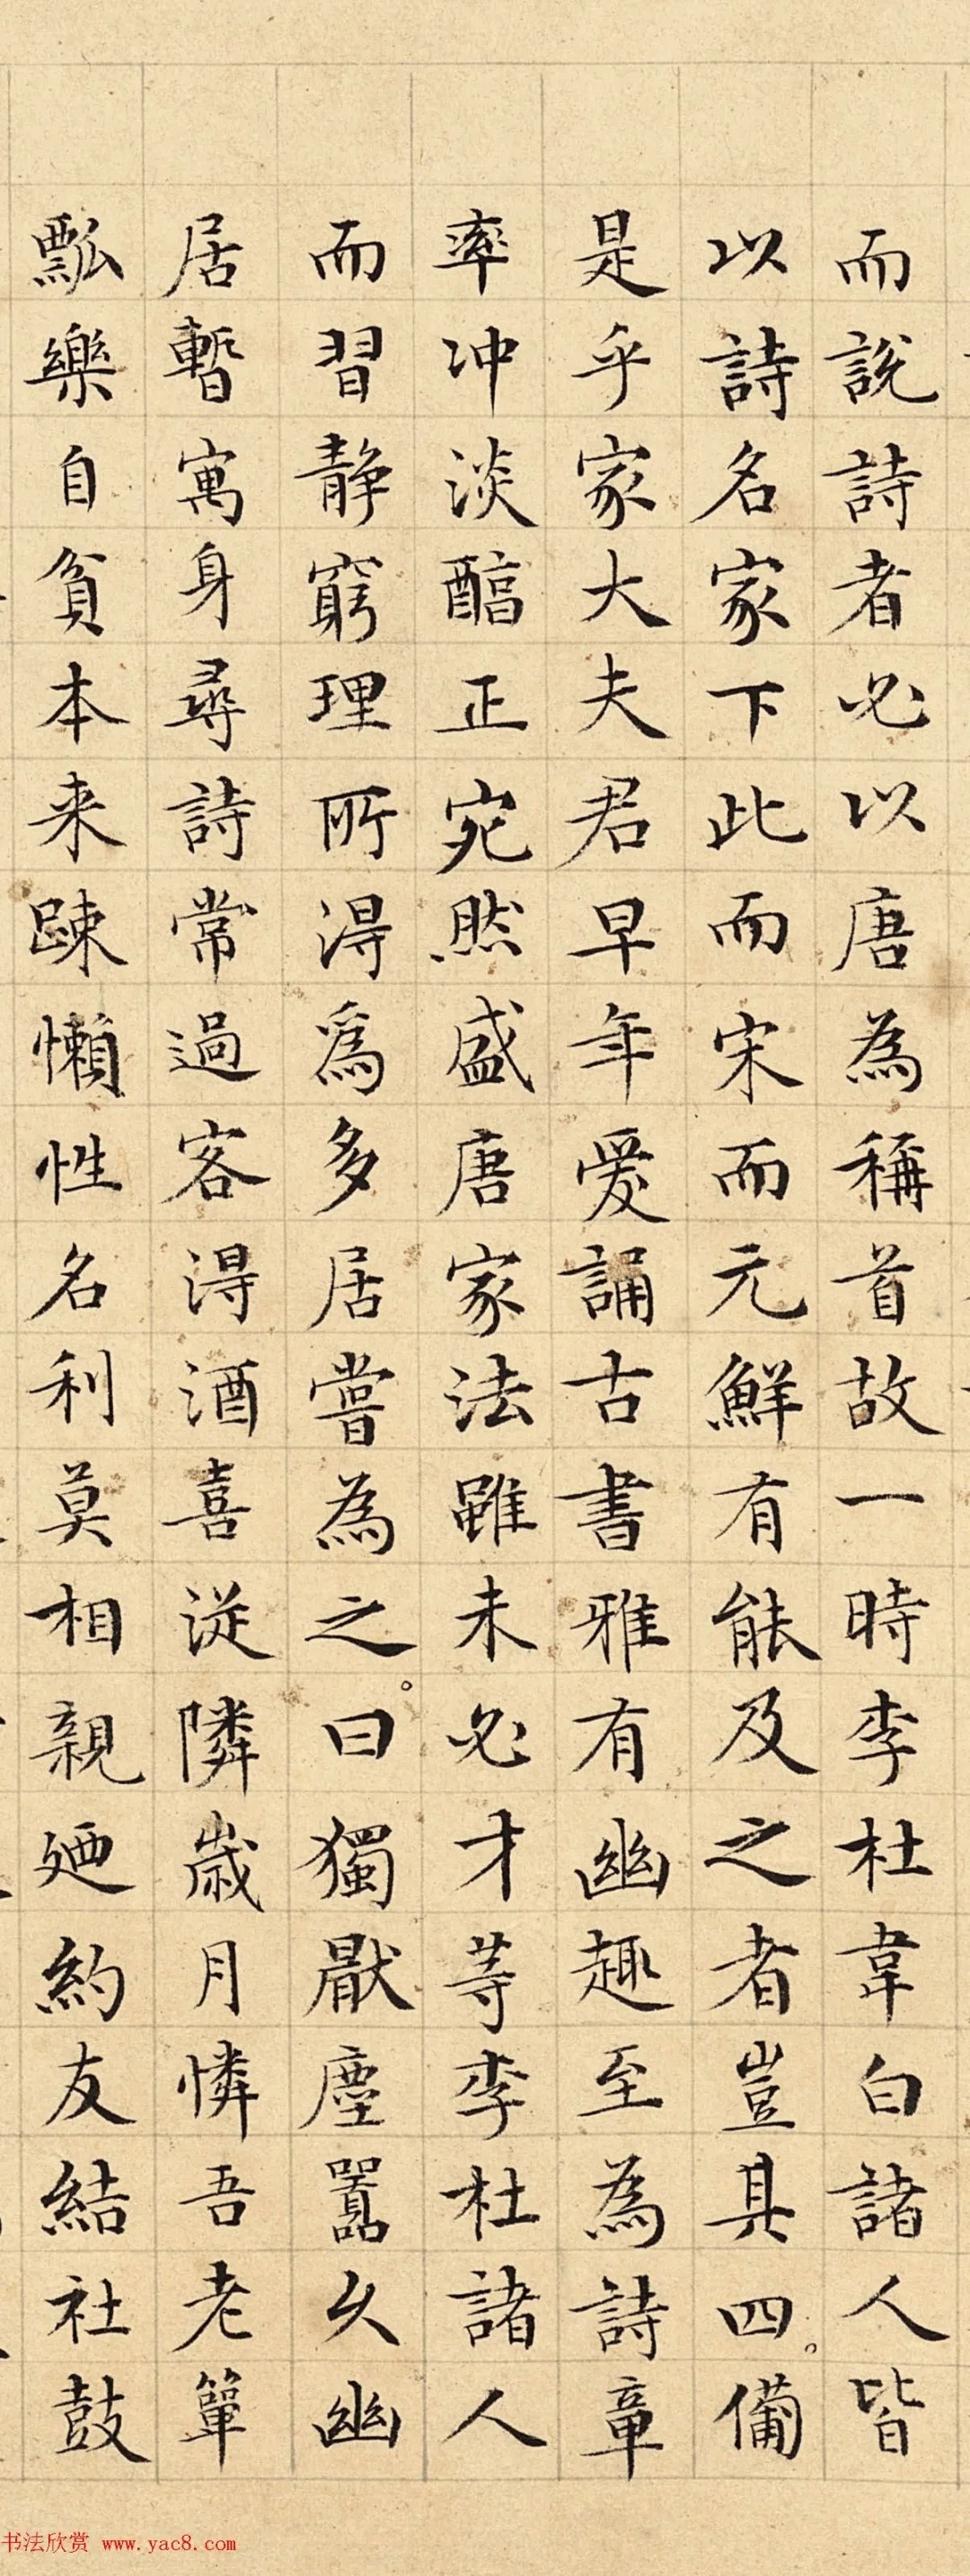 而說詩者必以唐為稱首故一時李杜韋白諸人皆
以詩名家下此而宋而元鮮有能及之者豈其四。備
是乎家大夫君早年爱誦古書雅有幽趣至為詩章
率冲淡醕正宛然盛唐家法雖未必才等李杜諸人
而習静窮理所淂爲多居嘗為之。曰獨厭塵囂久幽
居暫寓身尋詩常過客淂酒喜從隣歲月憐吾老簞
瓢樂自貧本来踈懶性名利莫相親廼約友結社鼓
书法欣赏 www.yac8.com